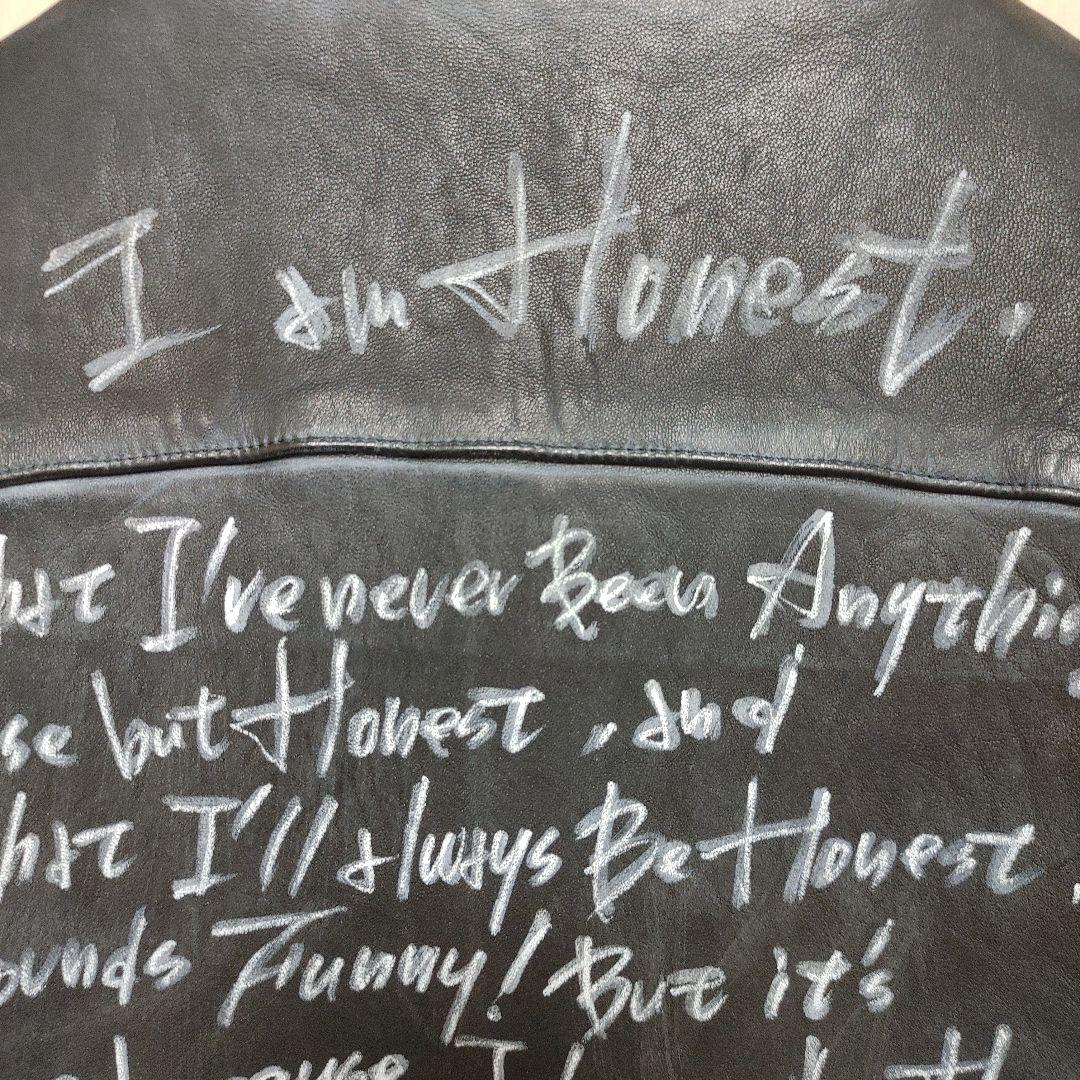 I am Honest.
hat I've never Been Anythin
se but Honest, and
hat I'll always Be Honest,
ounds Funny! But it's